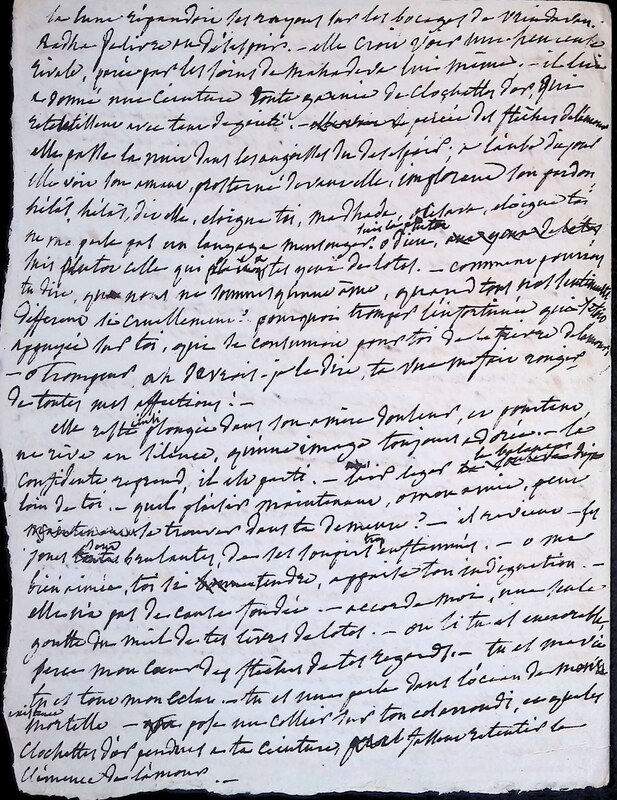 la lune répandre ses rayons sur les bocages de Vrindavan.
Radha se livre au désespoir. — elle croit voir une heureuse
rivale, parée par les soins de Mahadeva lui même. — il lui
a donné une ceinture toute garnie de clochettes d'or qui
retentissent avec tant de gaieté. — percée des flèches de l'amour
elle passe la nuit dans les angoisses du desespoir. a l'aube du jour
elle voit son amant, prosterné devant elle, implorant son pardon
hélas, hélas, dit elle, eloigne toi, Madhava, Kesava, eloigne toi
ne me parle pas un langage mensonger. o dieu,
suis plutot celle qui tes yeux de lotos. — comment pourrais
tu dire, que nous ne sommes qu'une âme, quand tous nos sentiments
different si cruellement? pourquoi tromper l'infortunée qui
appuyée sur toi, que se consume pour toi de la fievre de l'amour
— o trompeur oh devrois-je le dire, ta vue me fait rougir
de toutes mes affections! —
elle reste plongée dans son amère douleur, et pourtant
ne reve en silence, qu'une image toujours adorée. — la
confidente reprend, il est parti. — leger
loin de toi. — quel plaisir maintenant, o mon amie, peut
se trouver dans ta demeure? — il revient — ses
joues sont brulantes, de ses soupirs enflammés. — o ma
bien aimée, toi si tendre, appaise ton indignation. —
elle n'a pas de cause fondée. — accorde moi, une seule
goutte du miel de tes lèvres de lotos. — ou si tu es inexorable,
perce mon coeur des flèches de tes regards. — tu es ma vie
tu es tout mon eclat. — tu es une perle dans l'océan de mon
existence mortelle — pose un collier sur ton col arrondi, et que les
clochettes d'or pendues a ta ceinture, fassent retentir la
clémence de l'amour. —